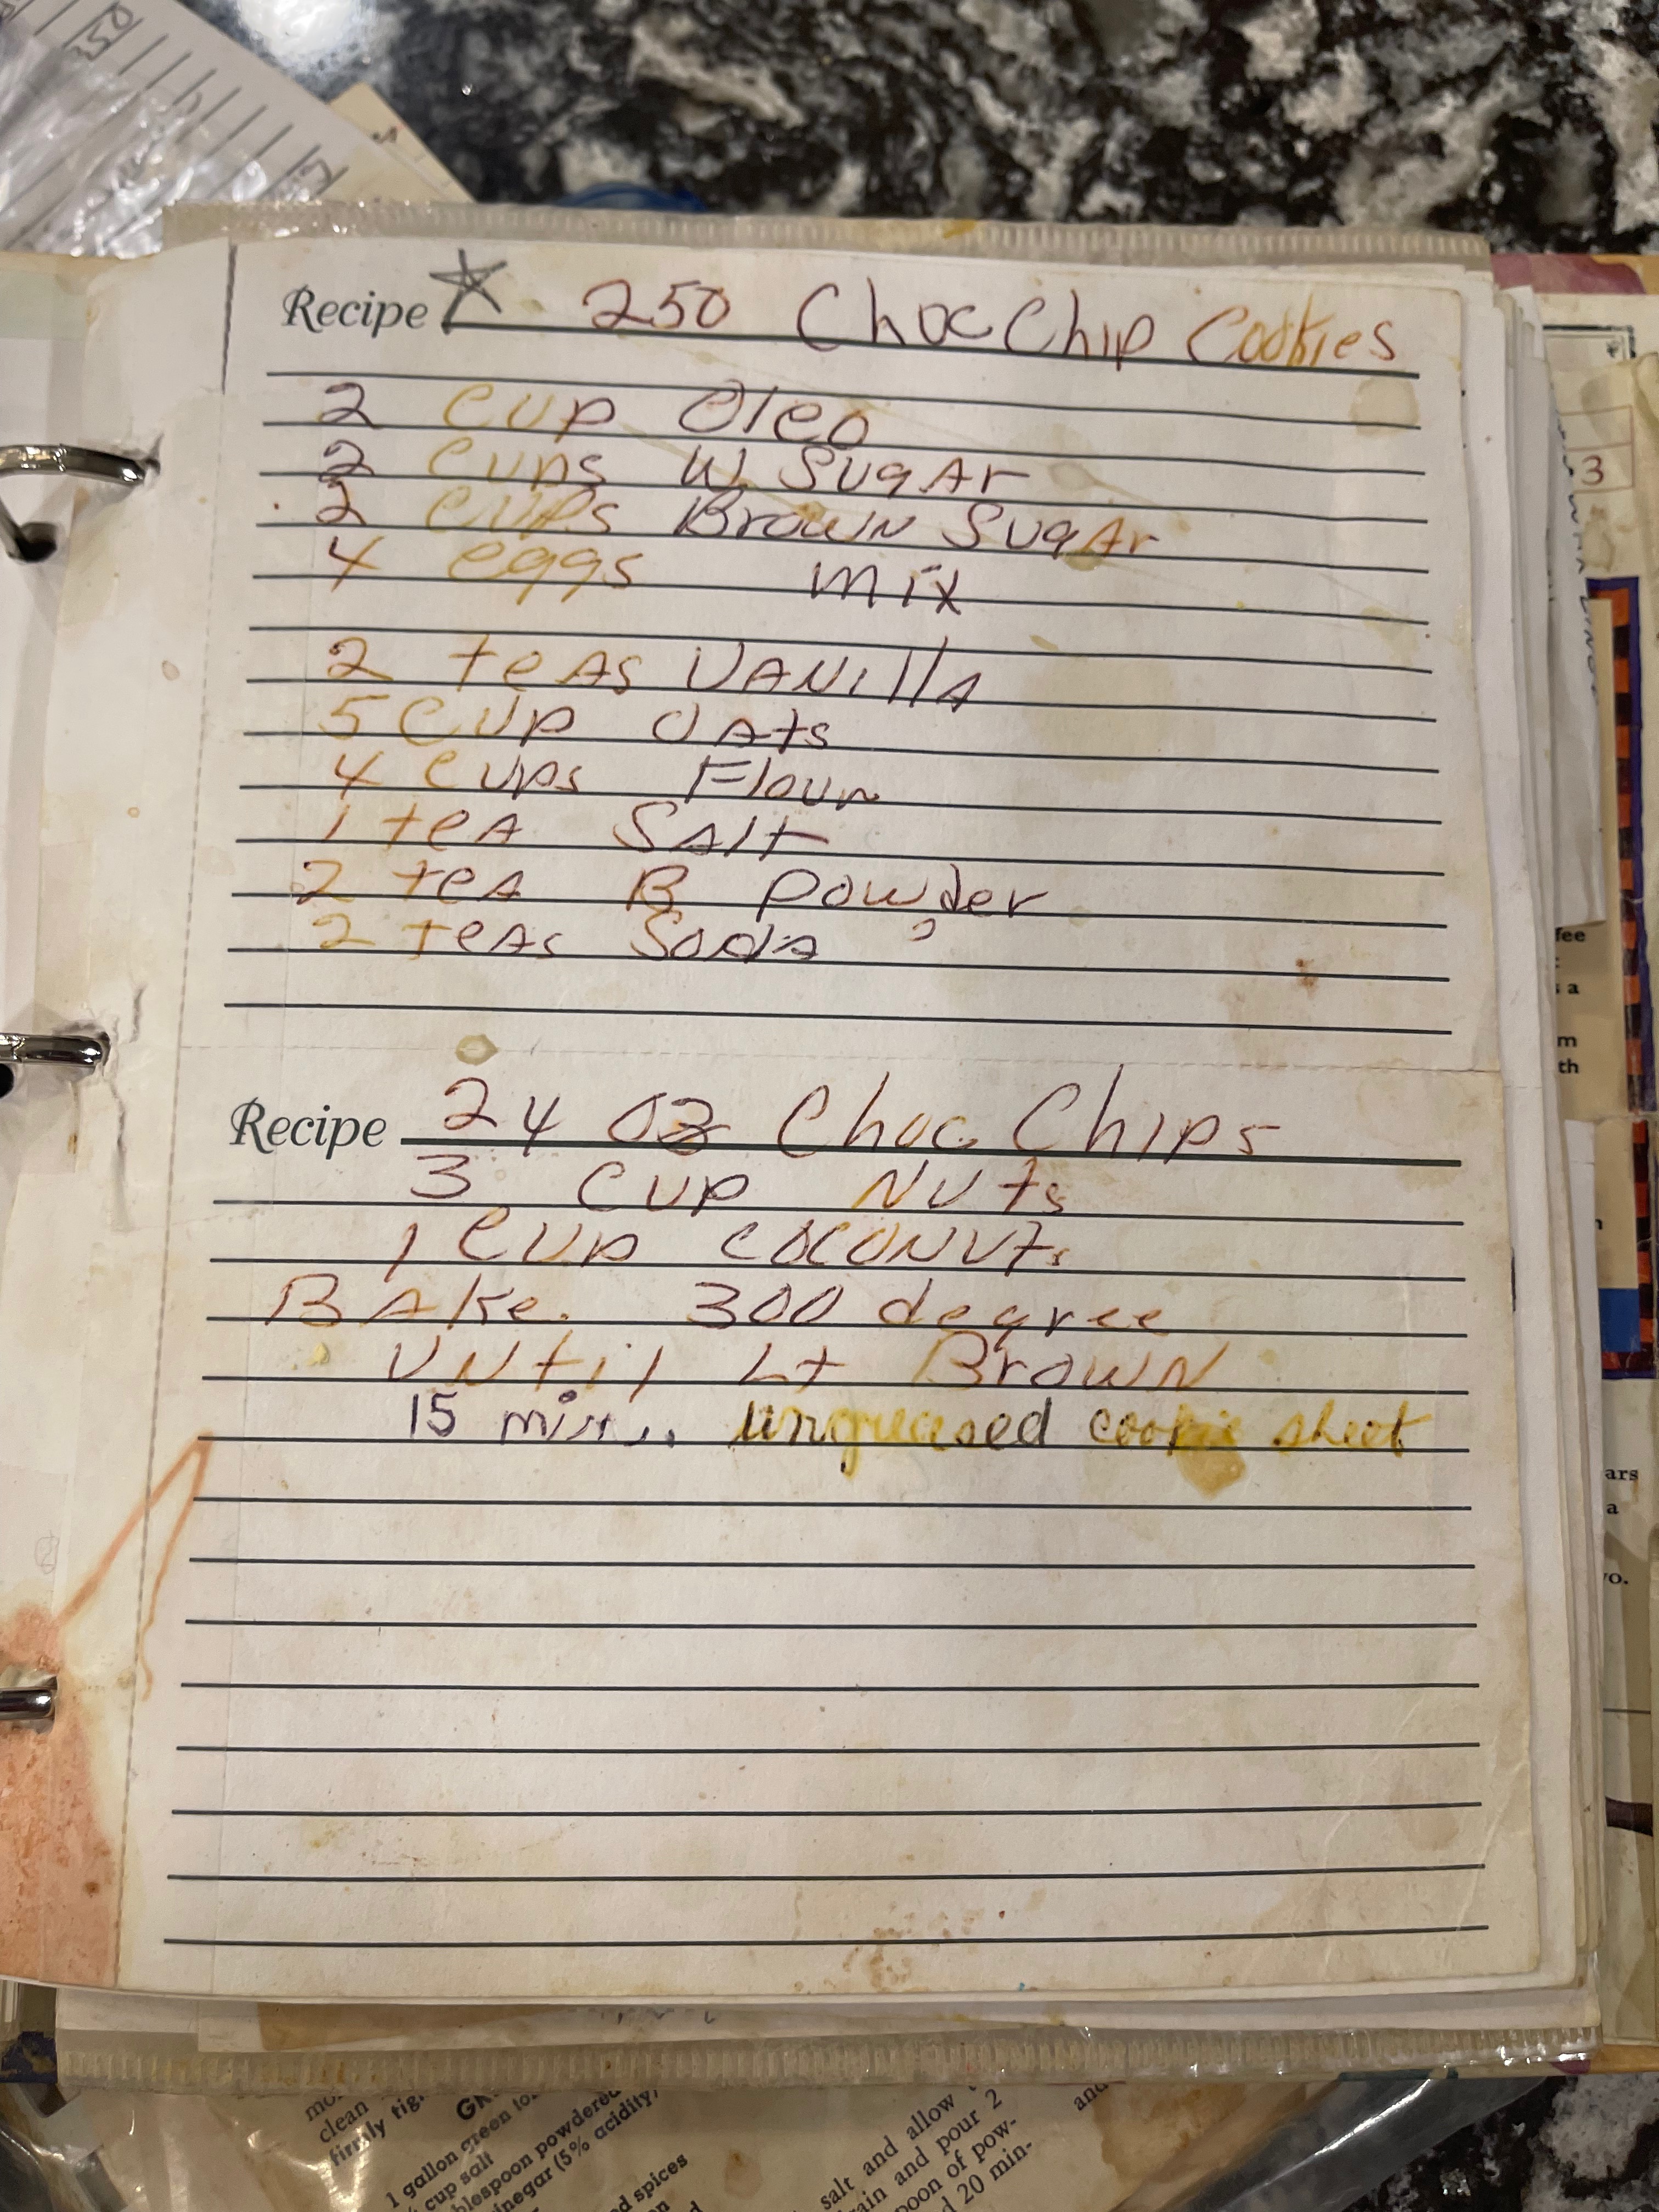 Recipe 250 Choc Chip Cookies
2 Cup Oleo
2 Cups W. Sugar
2 Cups Brown Sugar
4 eggs mix
2 teas Vanilla
5 Cup Oats
4 Cups Flour
1 tea Salt
2 tea B Powder
2 teas Soda
Recipe 24 oz Choc Chips
3 Cup Nuts
1 Cup Coconuts
Bake. 300 degree
Until Lt Brown
15 min. ungreased cookie sheet
3
fee
s a
m
th
ars
a
vo.
clean
firmly
1 gallon green
cup salt
powdered
(5% acidity)
spices
salt and allow
and pour 2
of pow-
20 min-
and